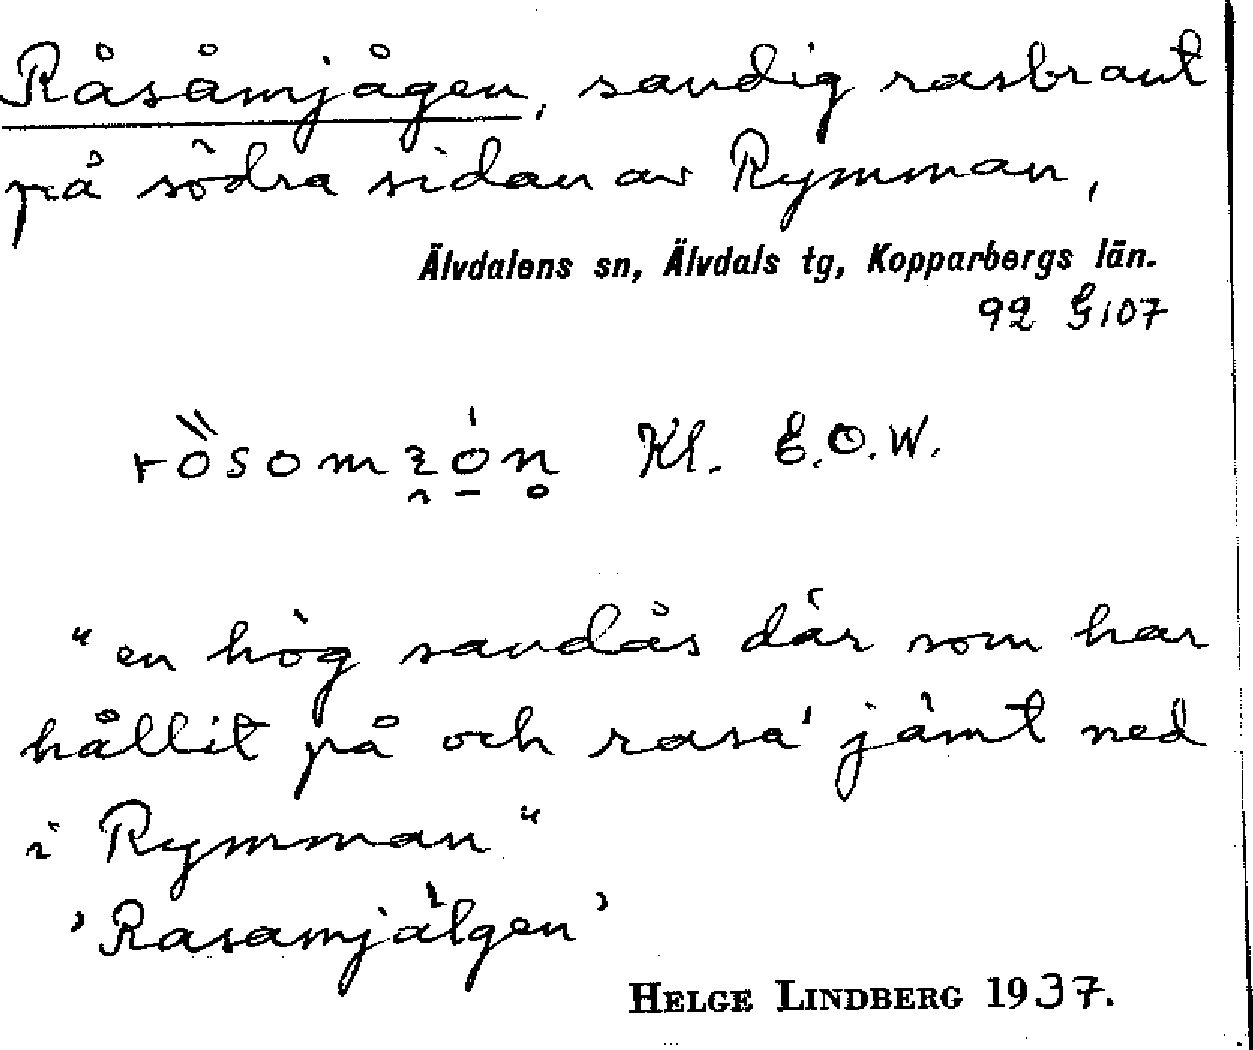 Råsåmjågen, sandig rasbrant
på södra sidan av Rymman,
Älvdalens sn, Älvdals tg, Kopparbergs län.
92 G 107
Kl. E.O.W.
"en hög sandås där som har
hållit på och rasa' jämt ned
i Rymman"
'Rasamjälgen'
HELGE LINDBERG 1937.